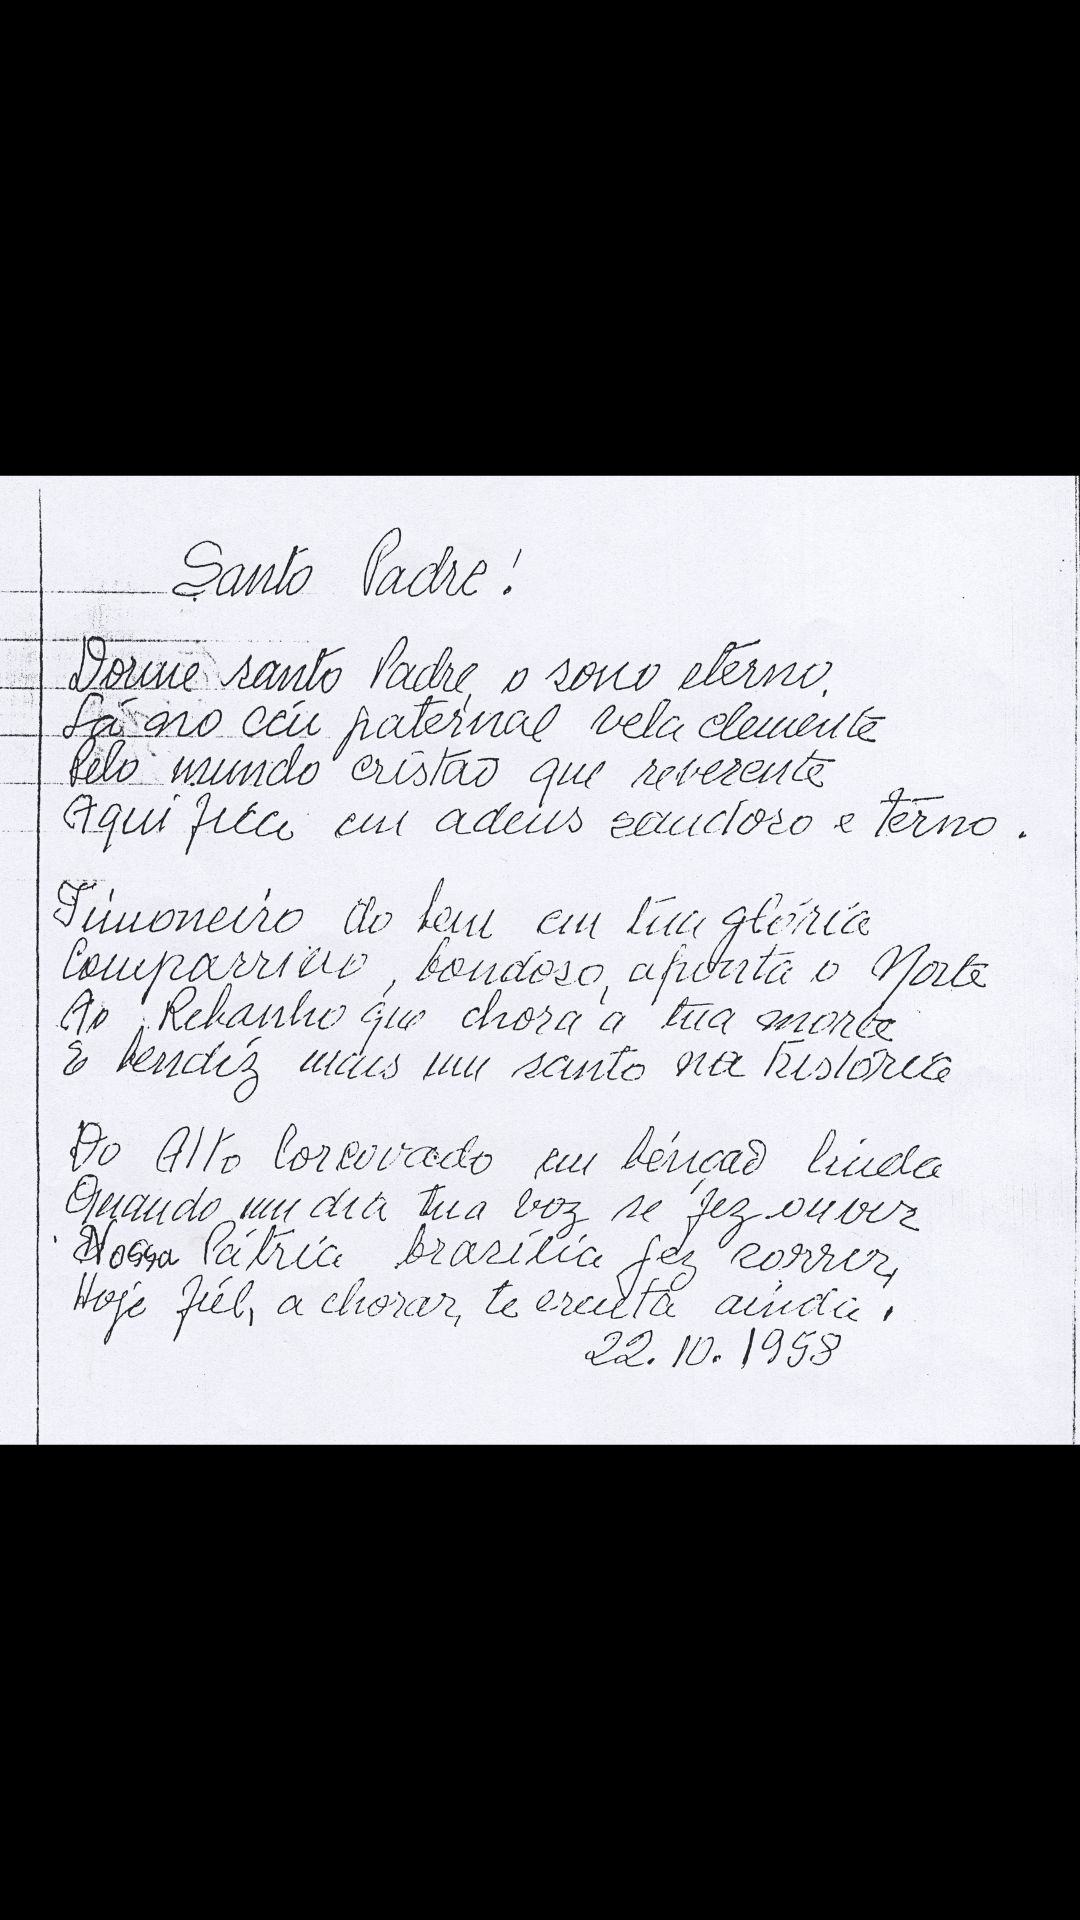 Santo Padre!
Dorme santo Padre, o sono eterno,
Lá no céu paternal vela clemente
Pelo mundo cristão que reverente
Aqui fica em adeus saudoso e terno.
Timoneiro do bem em tua glória
Compassivo, bondoso, aponta o Norte
Ao Rebanho que chora a tua morte
E bendiz mais um santo na história
Do Alto Corcovado em bênção linda
Quando um dia tua voz se fez ouvir
Nossa Pátria brasília fez sorrir,
Hoje fiel, a chorar, te escuta ainda.
22.10.1958